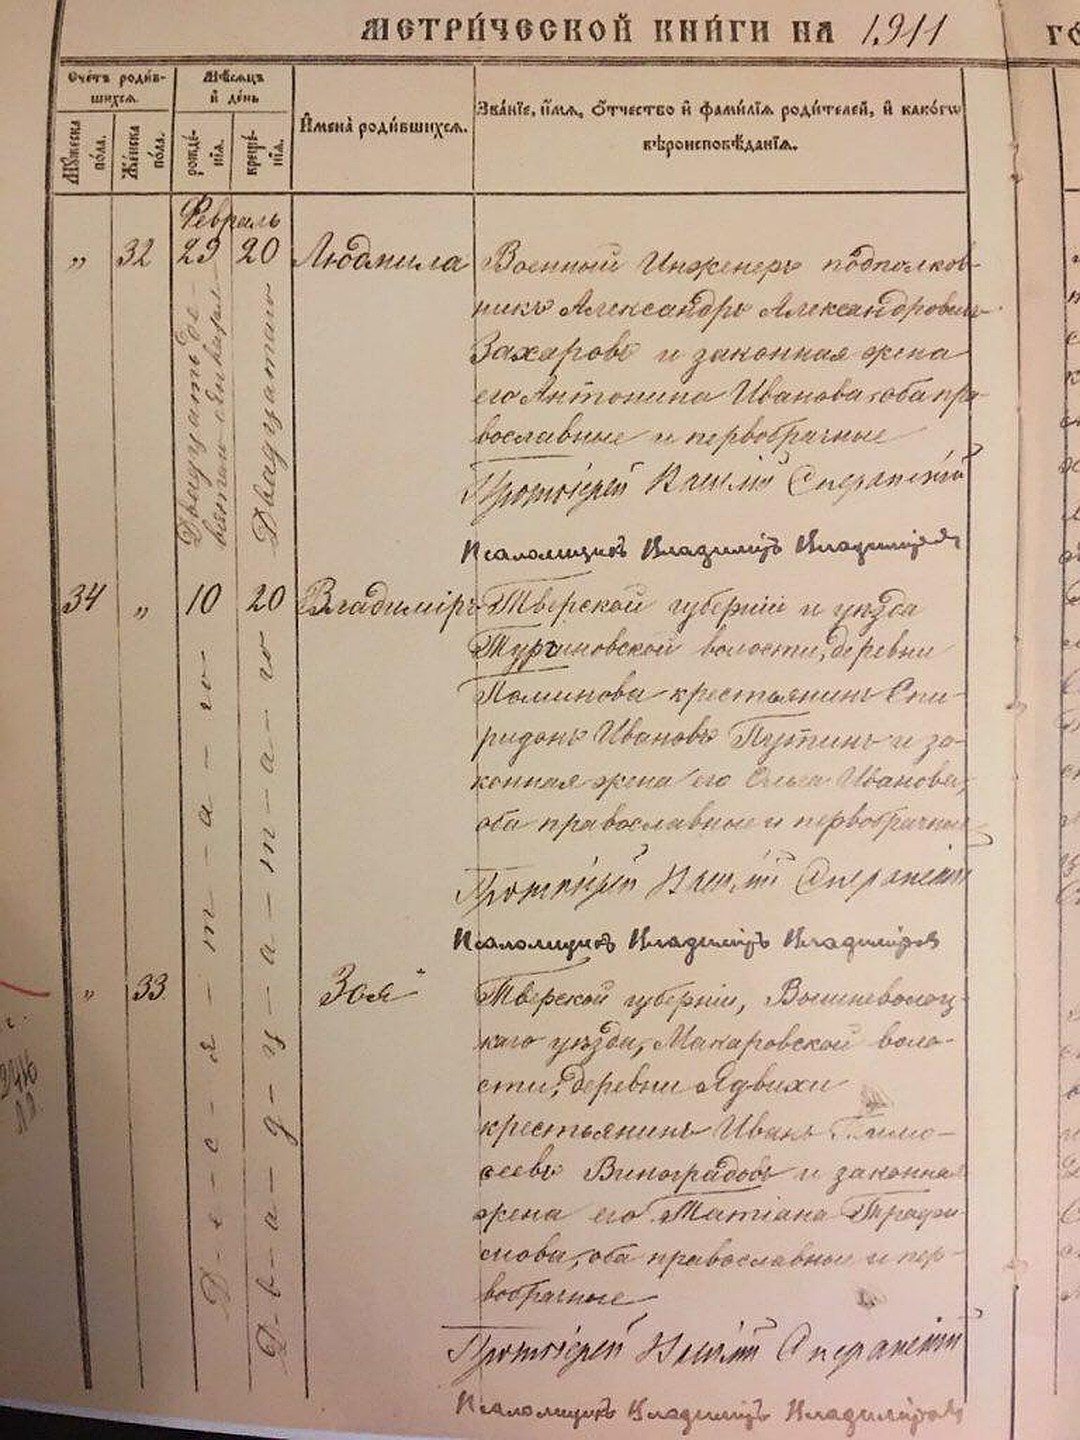 МЕТРИ́ЧЕСКОЙ КНИ́ГИ НА 1911
ГО
Сче́тъ роди́в-
шихся.
Мѣ́сяцъ
и҆ де́нь
И҆мена̀ роди́вшихся.
Зва́нїе, и҆́мя, ѻ҆́тчество и҆ фами́лїя роди́телей, и҆ како́гѡ
вѣроисповѣ́данїя.
Му́жеска
по́ла.
Же́нска
по́ла.
рожде́-
нїя.
креще́-
нїя.
Февраль
„ 32 29 20 Людмила
Двадцатаго
Военный Инженеръ подполков-
никъ Александръ Александровичъ
Захаровъ и законная жена
его Антонина Иванова оба пра-
вославные и первобрачные
Протоіерей Сперанскій
Псаломщикъ Владиміръ Владиміровъ
34 „ 10 20 Владиміръ
Д-е-с-я-т-а-го
Д-в-а-д-ц-а-т-а-го
Тверской губерніи и уѣзда
Тургиновской волости, деревни
Поминова крестьянинъ Спи-
ридонъ Ивановъ Путинъ и за-
конная жена его Ольга Иванова,
оба православные и первобрачные
Протоіерей Сперанскій
Псаломщикъ Владиміръ Владиміровъ
„ 33 Зоя
Тверской губерніи, Вышневолоц-
каго уѣзда, Макаровской воло-
сти, деревни Ядвихи
крестьянинъ Иванъ Тимо-
ѳеевъ Виноградовъ и законная
жена его Татіана Трофи-
мова, оба православные и пер-
вобрачные
Протоіерей Сперанскій
Псаломщикъ Владиміръ Владиміровъ